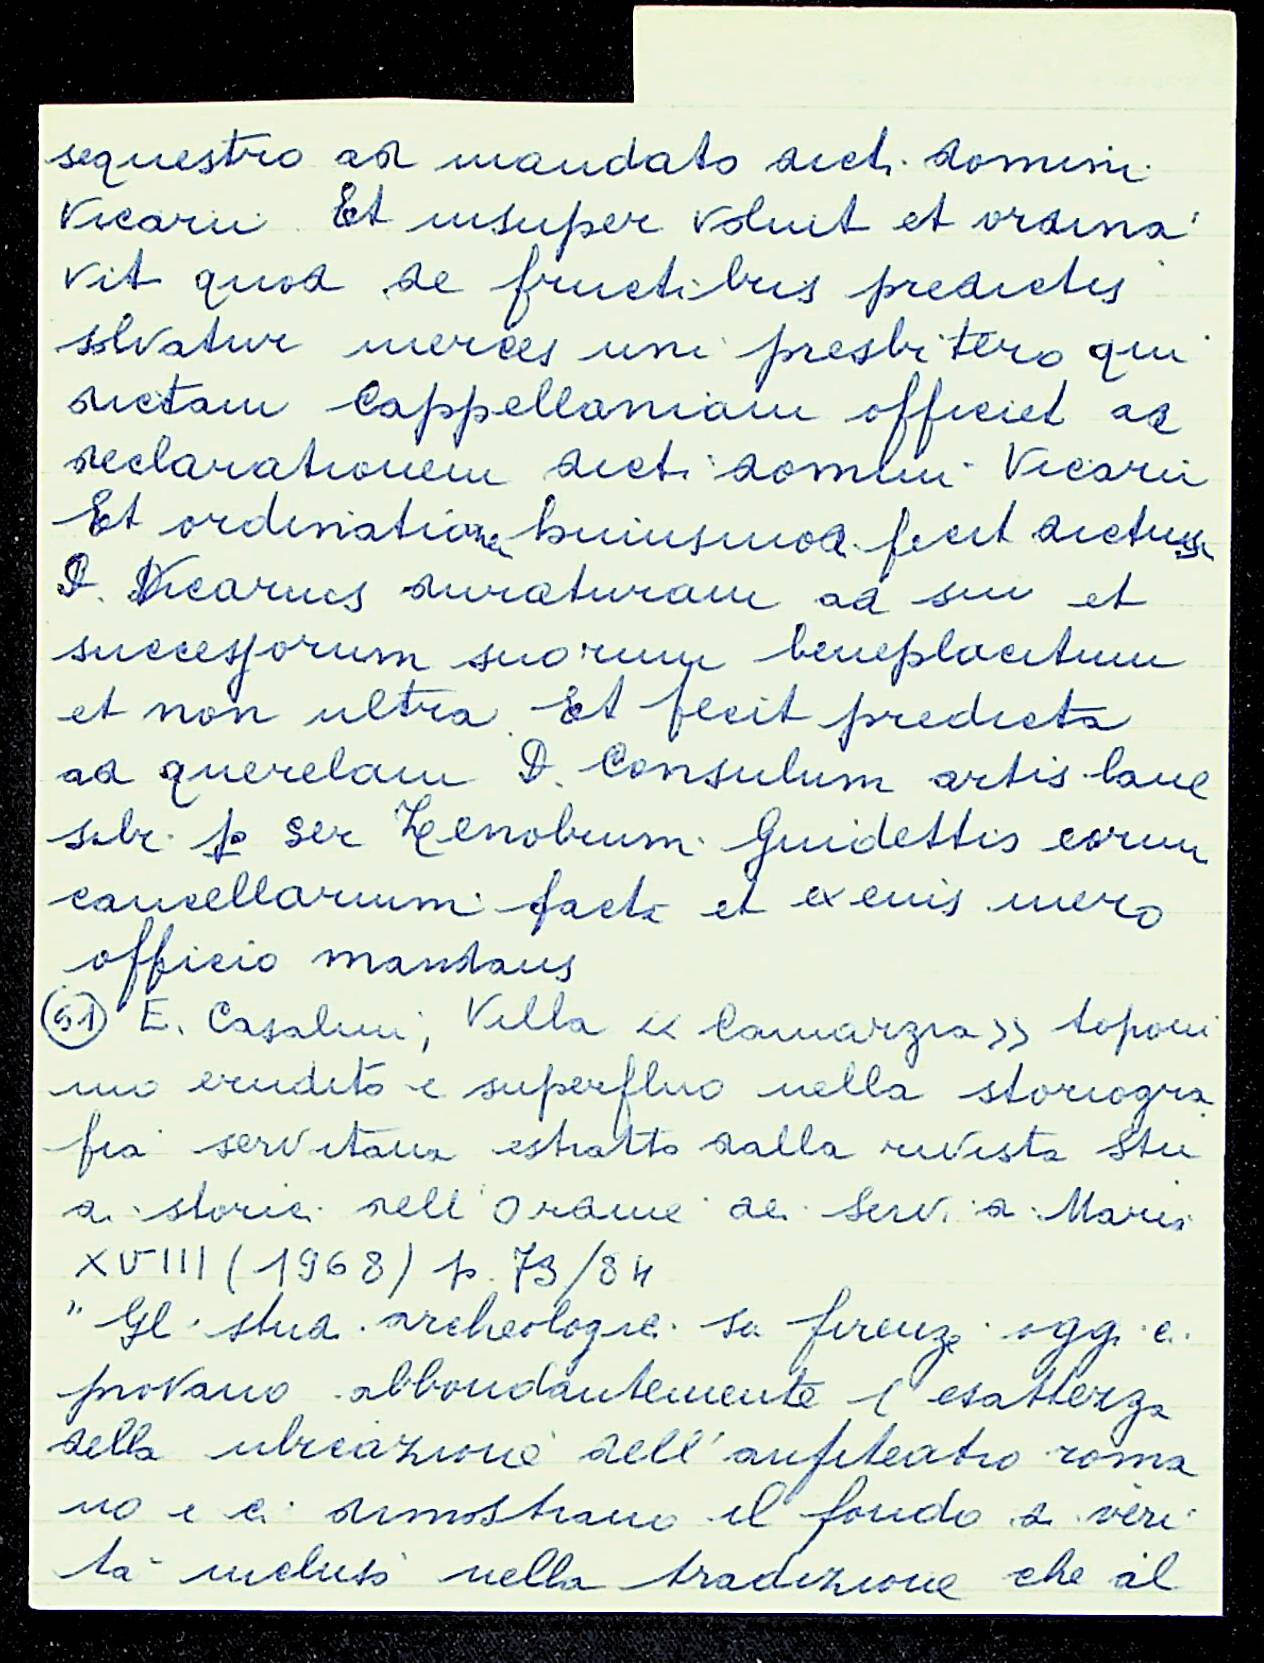 sequestro ad mandato dicti domini
Vicarii Et insuper voluit et ordina
vit quod de fructibus predictis
solvatur merces uni presbitero qui
dictam Cappellaniam officiet ad
declarationem dicti domini Vicarii
Et ordinationem huiusmodi fecit dictus
D. Vicarius duraturam ad sui et
successorum suorum beneplacitum
et non ultra Et fecit predicta
ad querelam D. Consulum artis lane
sibi p ser Zenobium Guidettis eorum
cancellarium facta et ex eius mero
officio mandans
(51) E. Casalini, Villa « Camarzia » toponi
mo erudito e superfluo nella storiogra
fia servitana estratto dalla rivista Stu
di storici dell'Ordine dei Servi di Maria
XVIII (1968) p. 73/84
"Gli studi archeologici su firenze oggi ci
provano abbondantemente l'esattezza
della ubicazione dell'anfiteatro roma
no e ci dimostrano il fondo di veri
tà incluso nella tradizione che al